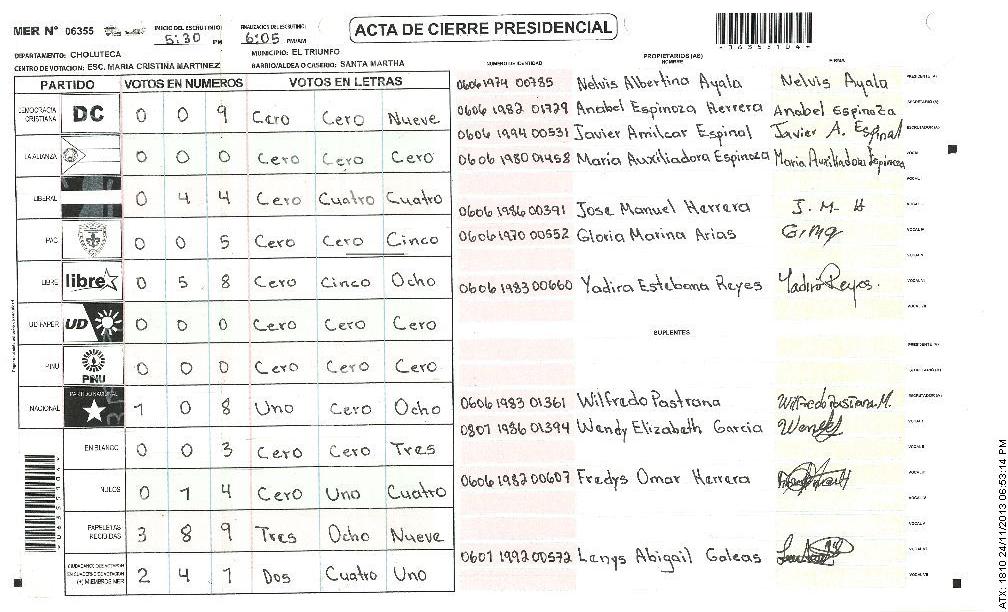 MER Nº 06355
INICIO DEL ESCRUTINIO
5:30 PM
FINALIZACION DEL ESCRUTINIO
6:05 PM/AM
ACTA DE CIERRE PRESIDENCIAL
DEPARTAMENTO: CHOLUTECA
MUNICIPIO: EL TRIUNFO
CENTRO DE VOTACION: ESC. MARIA CRISTINA MARTINEZ
BARRIO/ALDEA O CASERIO: SANTA MARTHA
PARTIDO VOTOS EN NUMEROS VOTOS EN LETRAS
DEMOCRACIA CRISTIANA DC 0 0 9 Cero Cero Nueve
LA ALIANZA 0 0 0 Cero Cero Cero
LIBERAL 0 4 4 Cero Cuatro Cuatro
PAC 0 0 5 Cero Cero Cinco
LIBRE libre 0 5 8 Cero Cinco Ocho
UD FAPER UD 0 0 0 Cero Cero Cero
PINU PINU 0 0 0 Cero Cero Cero
NACIONAL PARTIDO NACIONAL 1 0 8 Uno Cero Ocho
EN BLANCO 0 0 3 Cero Cero Tres
NULOS 0 1 4 Cero Uno Cuatro
PAPELETAS RECIBIDAS 3 8 9 Tres Ocho Nueve
CIUDADANOS QUE VOTARON EN CUADERNO DE VOTACION (+) MIEMBROS MER 2 4 1 Dos Cuatro Uno
NUMERO DE IDENTIDAD PROPIETARIOS (AS) NOMBRE FIRMA
0606 1974 00785 Nelvis Albertina Ayala Nelvis Ayala PRESIDENTE (A)
0606 1982 01729 Anabel Espinoza Herrera Anabel Espinoza SECRETARIO (A)
0606 1994 00531 Javier Amilcar Espinal Javier A. Espinal ESCRUTADOR (A)
0606 1980 01458 Maria Auxiliadora Espinoza Maria Auxiliadora Espinoza
0606 1986 00391 Jose Manuel Herrera J. M. H
0606 1970 00552 Gloria Marina Arias
0606 1983 00660 Yadira Estebana Reyes Yadira Reyes.
SUPLENTES
PRESIDENTE (A)
SECRETARIO (A)
0606 1983 01361 Wilfredo Pastrana Wilfredo Pastrana M. ESCRUTADOR (A)
0801 1986 01394 Wendy Elizabeth Garcia
0606 1982 00607 Fredys Omar Herrera
0601 1992 00572 Lenys Abigail Galeas
VOCAL VII
ATX: 1810 24/11/2013 06:53:14 PM